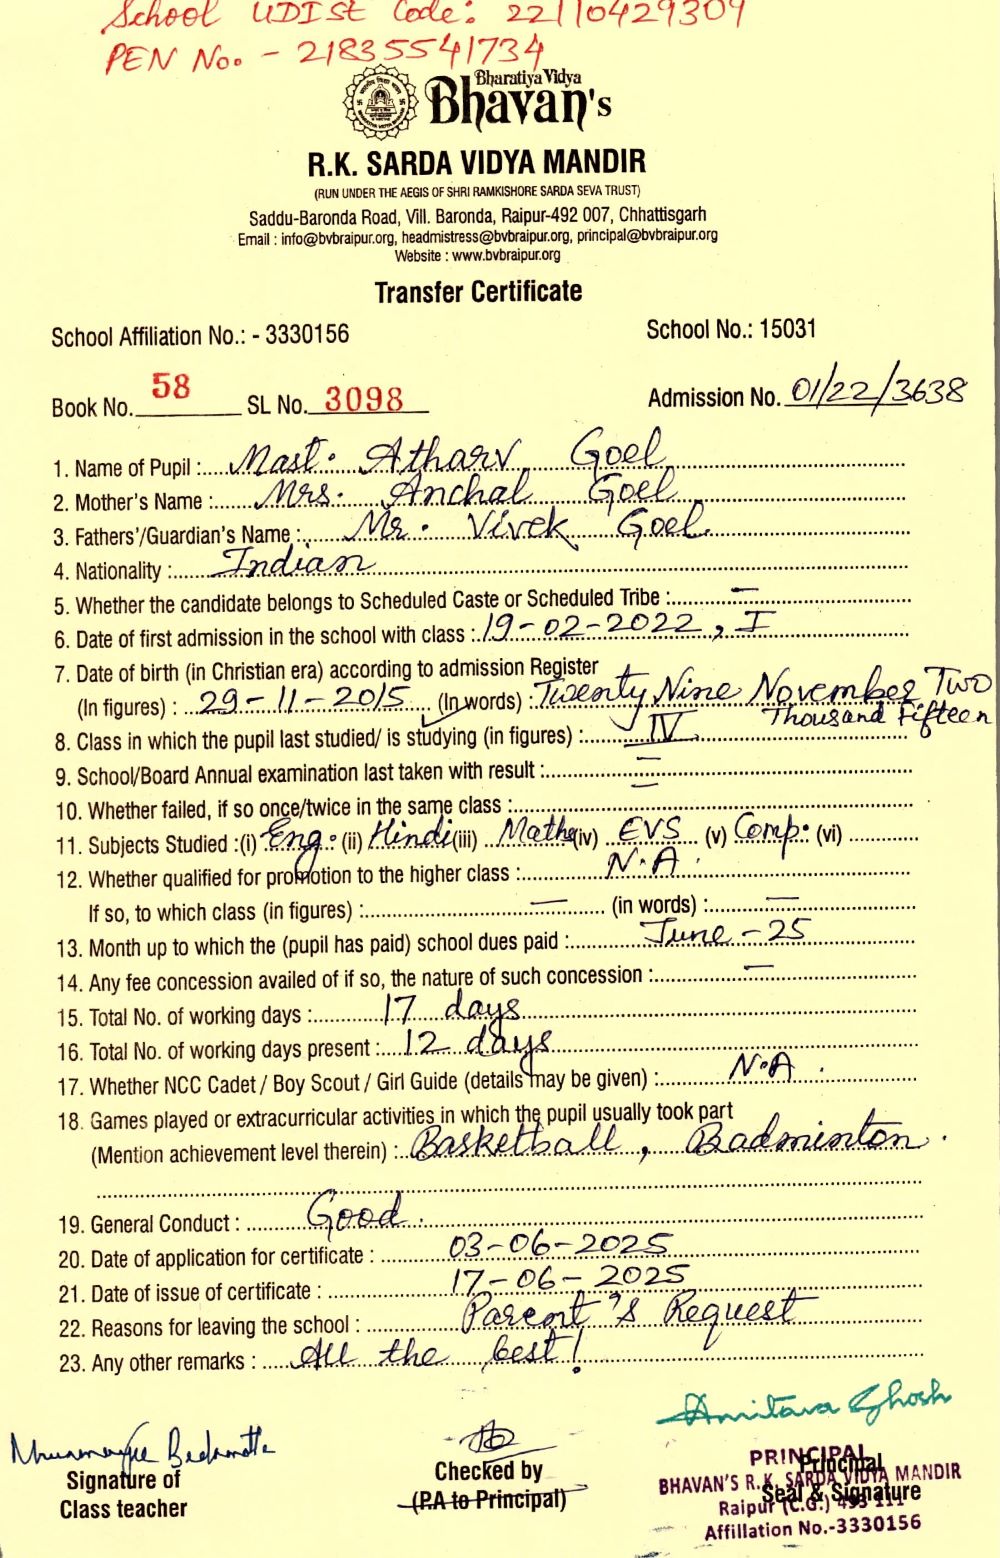 School UDISE Code: 22110429309
PEN No. - 21835541734
Bharatiya Vidya
Bhavan's
R.K. SARDA VIDYA MANDIR
(RUN UNDER THE AEGIS OF SHRI RAMKISHORE SARDA SEVA TRUST)
Saddu-Baronda Road, Vill. Baronda, Raipur-492 007, Chhattisgarh
Email : info@bvbraipur.org, headmistress@bvbraipur.org, principal@bvbraipur.org
Website : www.bvbraipur.org
Transfer Certificate
School Affiliation No.: - 3330156 School No.: 15031
Book No. 58 SL No. 3098 Admission No. 01/22/3638
1. Name of Pupil : Mast. Atharv Goel
2. Mother's Name : Mrs. Anchal Goel
3. Fathers'/Guardian's Name : Mr. Vivek Goel.
4. Nationality : Indian
5. Whether the candidate belongs to Scheduled Caste or Scheduled Tribe : —
6. Date of first admission in the school with class : 19-02-2022, I
7. Date of birth (in Christian era) according to admission Register
(In figures) : 29-11-2015 (In words) : Twenty Nine November Two
Thousand Fifteen
8. Class in which the pupil last studied/ is studying (in figures) : IV
9. School/Board Annual examination last taken with result : —
10. Whether failed, if so once/twice in the same class : —
11. Subjects Studied :(i) Eng. (ii) Hindi (iii) Maths (iv) EVS (v) Comp. (vi)
12. Whether qualified for promotion to the higher class : N.A.
If so, to which class (in figures) : — (in words) : —
13. Month up to which the (pupil has paid) school dues paid : June - 25
14. Any fee concession availed of if so, the nature of such concession : —
15. Total No. of working days : 17 days
16. Total No. of working days present : 12 days
17. Whether NCC Cadet / Boy Scout / Girl Guide (details may be given) : N.A.
18. Games played or extracurricular activities in which the pupil usually took part
(Mention achievement level therein) : Basketball, Badminton.
19. General Conduct : Good.
20. Date of application for certificate : 03-06-2025
21. Date of issue of certificate : 17-06-2025
22. Reasons for leaving the school : Parent's Request
23. Any other remarks : All the best!
Amitava Ghosh
Signature of
Class teacher
Checked by
(P.A to Principal)
Principal
Seal & Signature
PRINCIPAL
BHAVAN'S R.K. SARDA VIDYA MANDIR
Raipur (C.G.) 493 111
Affillation No.-3330156